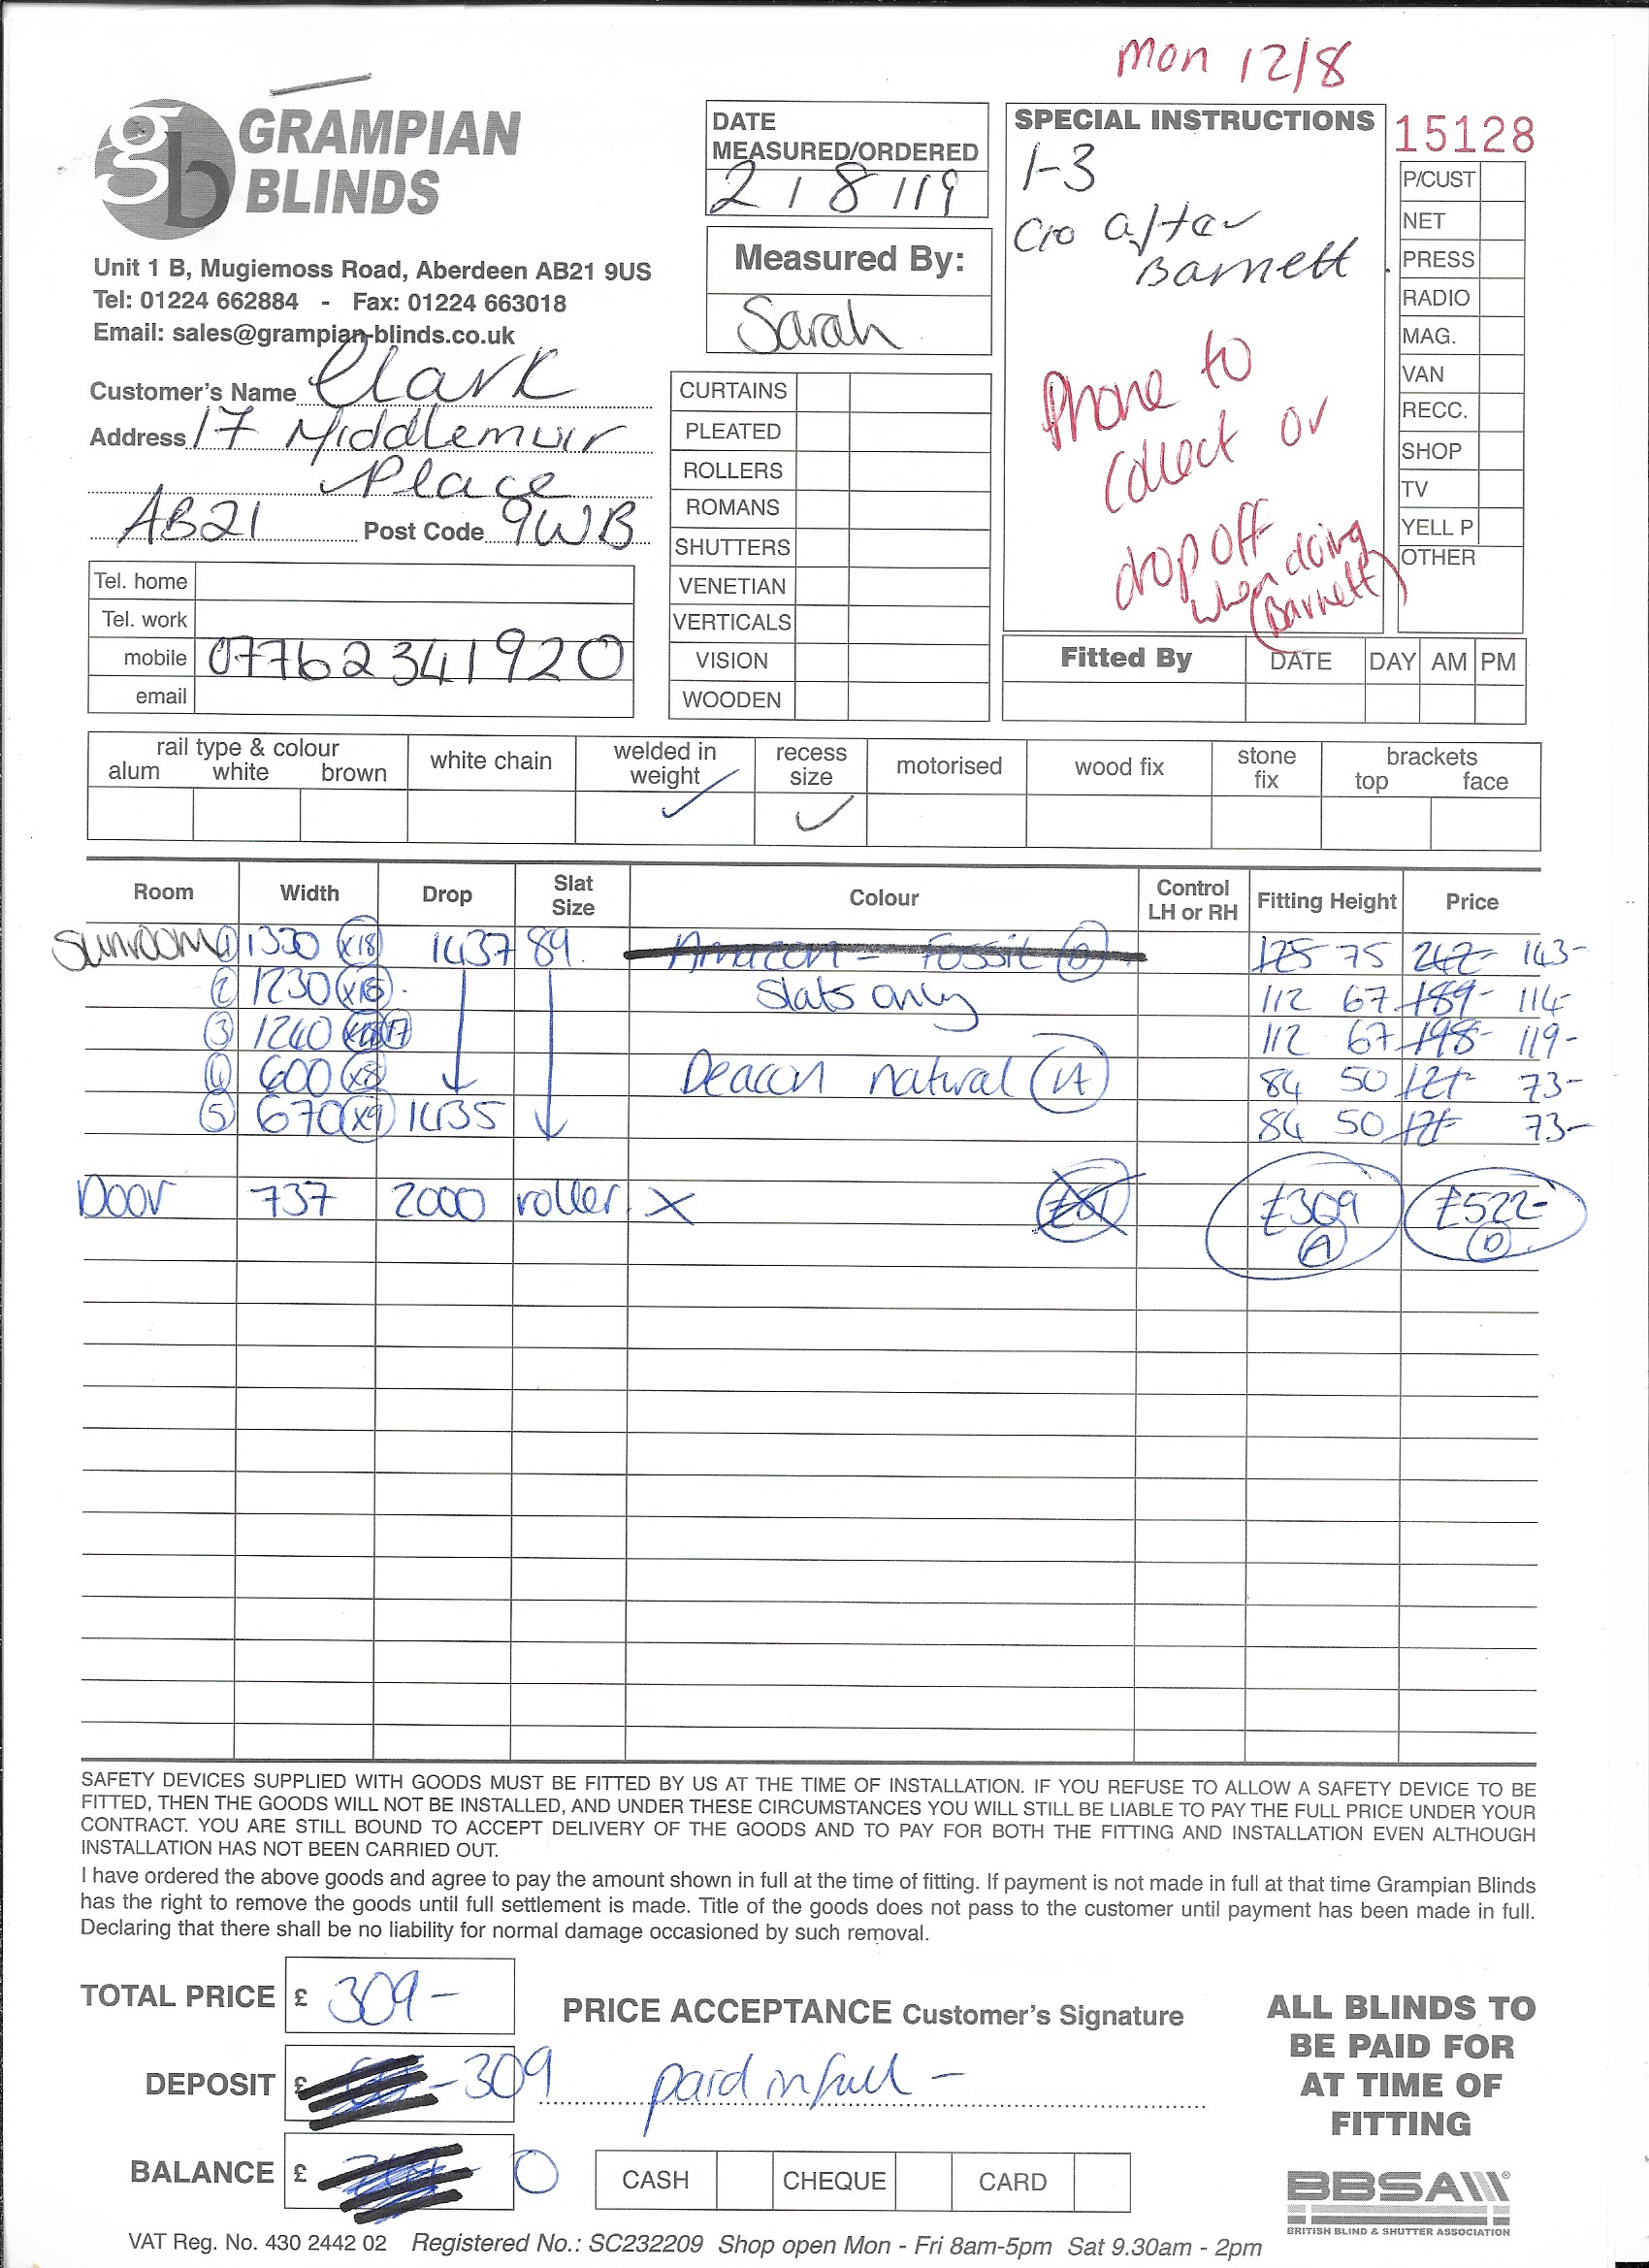 mon 12/8
GRAMPIAN
BLINDS
Unit 1 B, Mugiemoss Road, Aberdeen AB21 9US
Tel: 01224 662884 - Fax: 01224 663018
Email: sales@grampian-blinds.co.uk
Customer's Name Clark
Address 17 Middlemuir
Place
AB21 Post Code 9WB
Tel. home
Tel. work
mobile 07762341920
email
DATE
MEASURED/ORDERED
2/8/19
Measured By:
Sarah
CURTAINS
PLEATED
ROLLERS
ROMANS
SHUTTERS
VENETIAN
VERTICALS
VISION
WOODEN
SPECIAL INSTRUCTIONS
1-3
after
Barnett
Phone to
collect or
drop off
when doing
(Barnett)
15128
P/CUST
NET
PRESS
RADIO
MAG.
VAN
RECC.
SHOP
TV
YELL P
OTHER
Fitted By DATE DAY AM PM
rail type & colour
alum white brown
white chain
welded in
weight
recess
size
motorised
wood fix
stone
fix
brackets
top face
Room Width Drop Slat Size Colour Control LH or RH Fitting Height Price
Sunroom 1 1330 x18 1437 89 Amazon - Fossil 125 75 242- 143-
2 1230 Slats only 112 67 189- 114-
3 1240 17 112 67 198- 119-
4 600 x8 Deacon natural A 84 50 121- 73-
5 670 x9 1435 84 50 73-
Door 737 2000 roller X £309 £522-
A D
SAFETY DEVICES SUPPLIED WITH GOODS MUST BE FITTED BY US AT THE TIME OF INSTALLATION. IF YOU REFUSE TO ALLOW A SAFETY DEVICE TO BE
FITTED, THEN THE GOODS WILL NOT BE INSTALLED, AND UNDER THESE CIRCUMSTANCES YOU WILL STILL BE LIABLE TO PAY THE FULL PRICE UNDER YOUR
CONTRACT. YOU ARE STILL BOUND TO ACCEPT DELIVERY OF THE GOODS AND TO PAY FOR BOTH THE FITTING AND INSTALLATION EVEN ALTHOUGH
INSTALLATION HAS NOT BEEN CARRIED OUT.
I have ordered the above goods and agree to pay the amount shown in full at the time of fitting. If payment is not made in full at that time Grampian Blinds
has the right to remove the goods until full settlement is made. Title of the goods does not pass to the customer until payment has been made in full.
Declaring that there shall be no liability for normal damage occasioned by such removal.
TOTAL PRICE £ 309-
PRICE ACCEPTANCE Customer's Signature
DEPOSIT £ -309 paid in full -
BALANCE £ 0
CASH CHEQUE CARD
ALL BLINDS TO
BE PAID FOR
AT TIME OF
FITTING
BBSA
BRITISH BLIND & SHUTTER ASSOCIATION
VAT Reg. No. 430 2442 02 Registered No.: SC232209 Shop open Mon - Fri 8am-5pm Sat 9.30am - 2pm